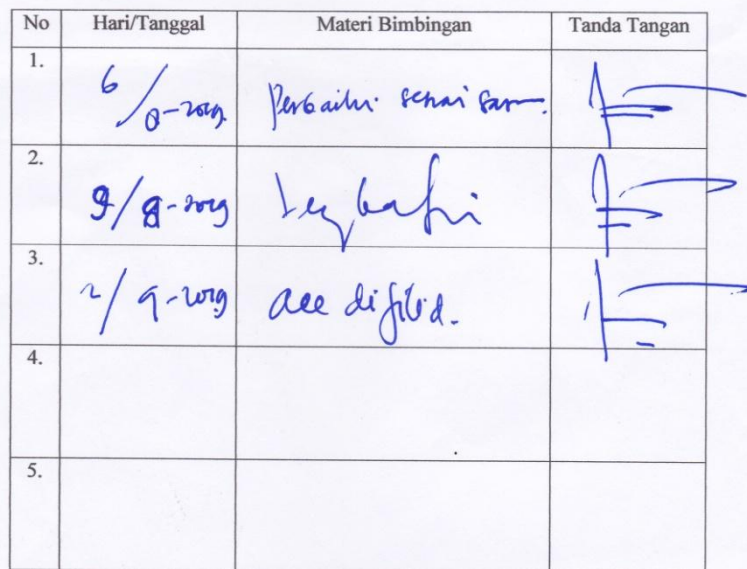 No Hari/Tanggal Materi Bimbingan Tanda Tangan
1. 6/8-2019 Perbaiki sesuai saran.
2. 9/8-2019
3. 2/9-2019 acc dijilid.
4.
5.